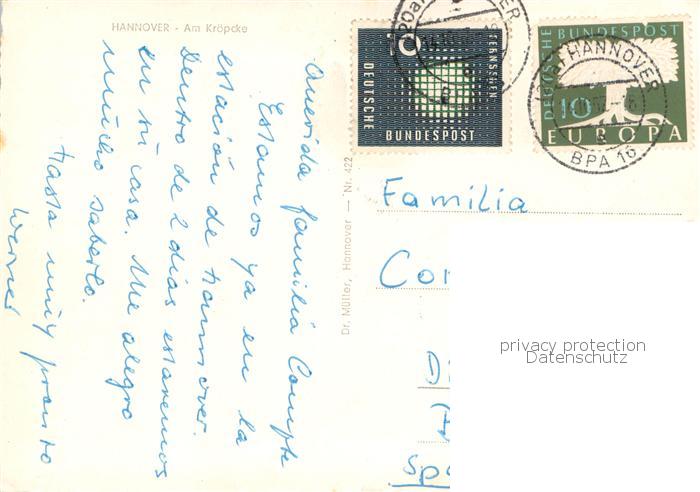 HANNOVER - Am Kröpcke
Querida familia Compte
Estamos ya en la
estación de Hannover.
Dentro de 2 dias estaremos
en tu casa. Me alegro
mucho saberlo.
Hasta muy pronto
Werner
Dr. Müller, Hannover — Nr. 422
10
FERNSEHEN
DEUTSCHE
BUNDESPOST
DEUTSCHE BUNDESPOST
10
EUROPA
HANNOVER
BPA 16
Familia
Co
privacy protection
Datenschutz